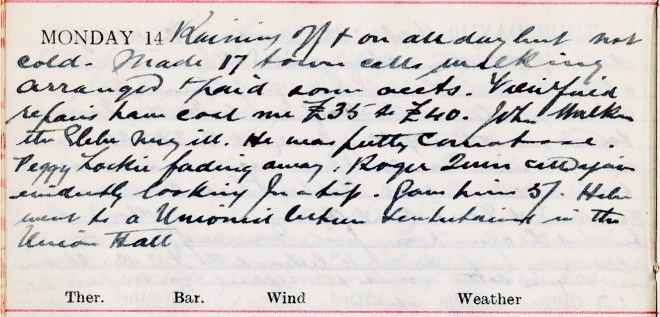 MONDAY 14 Raining off & on all day but not
cold. Made 17 town calls walking
arranged & paid some accts. Viewfield
repairs have cost me £35 to £40. John Walker
the Glebe very ill. He was pretty comatose.
Peggy Lockie fading away. Roger Quin called again
evidently looking for a tip. Gave him 5/. Helen
went to a Unionist lecture entertainment in the
Union Hall
Ther. Bar. Wind Weather